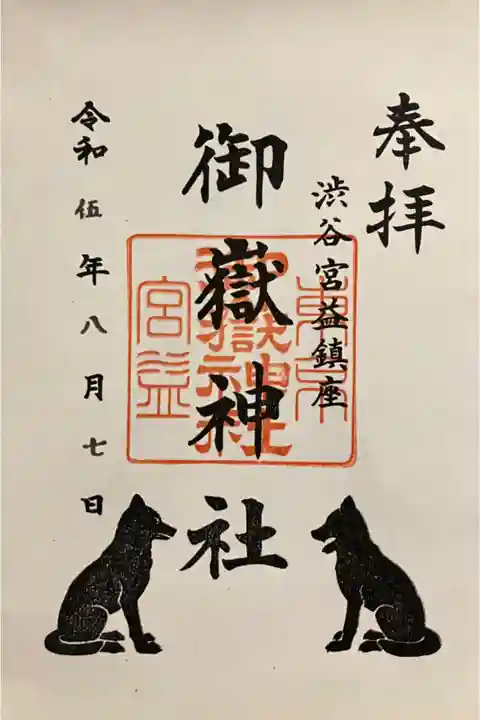 奉拝
渋谷宮益鎮座
御嶽神社
令和伍年八月七日
東京
御嶽神社
宮益